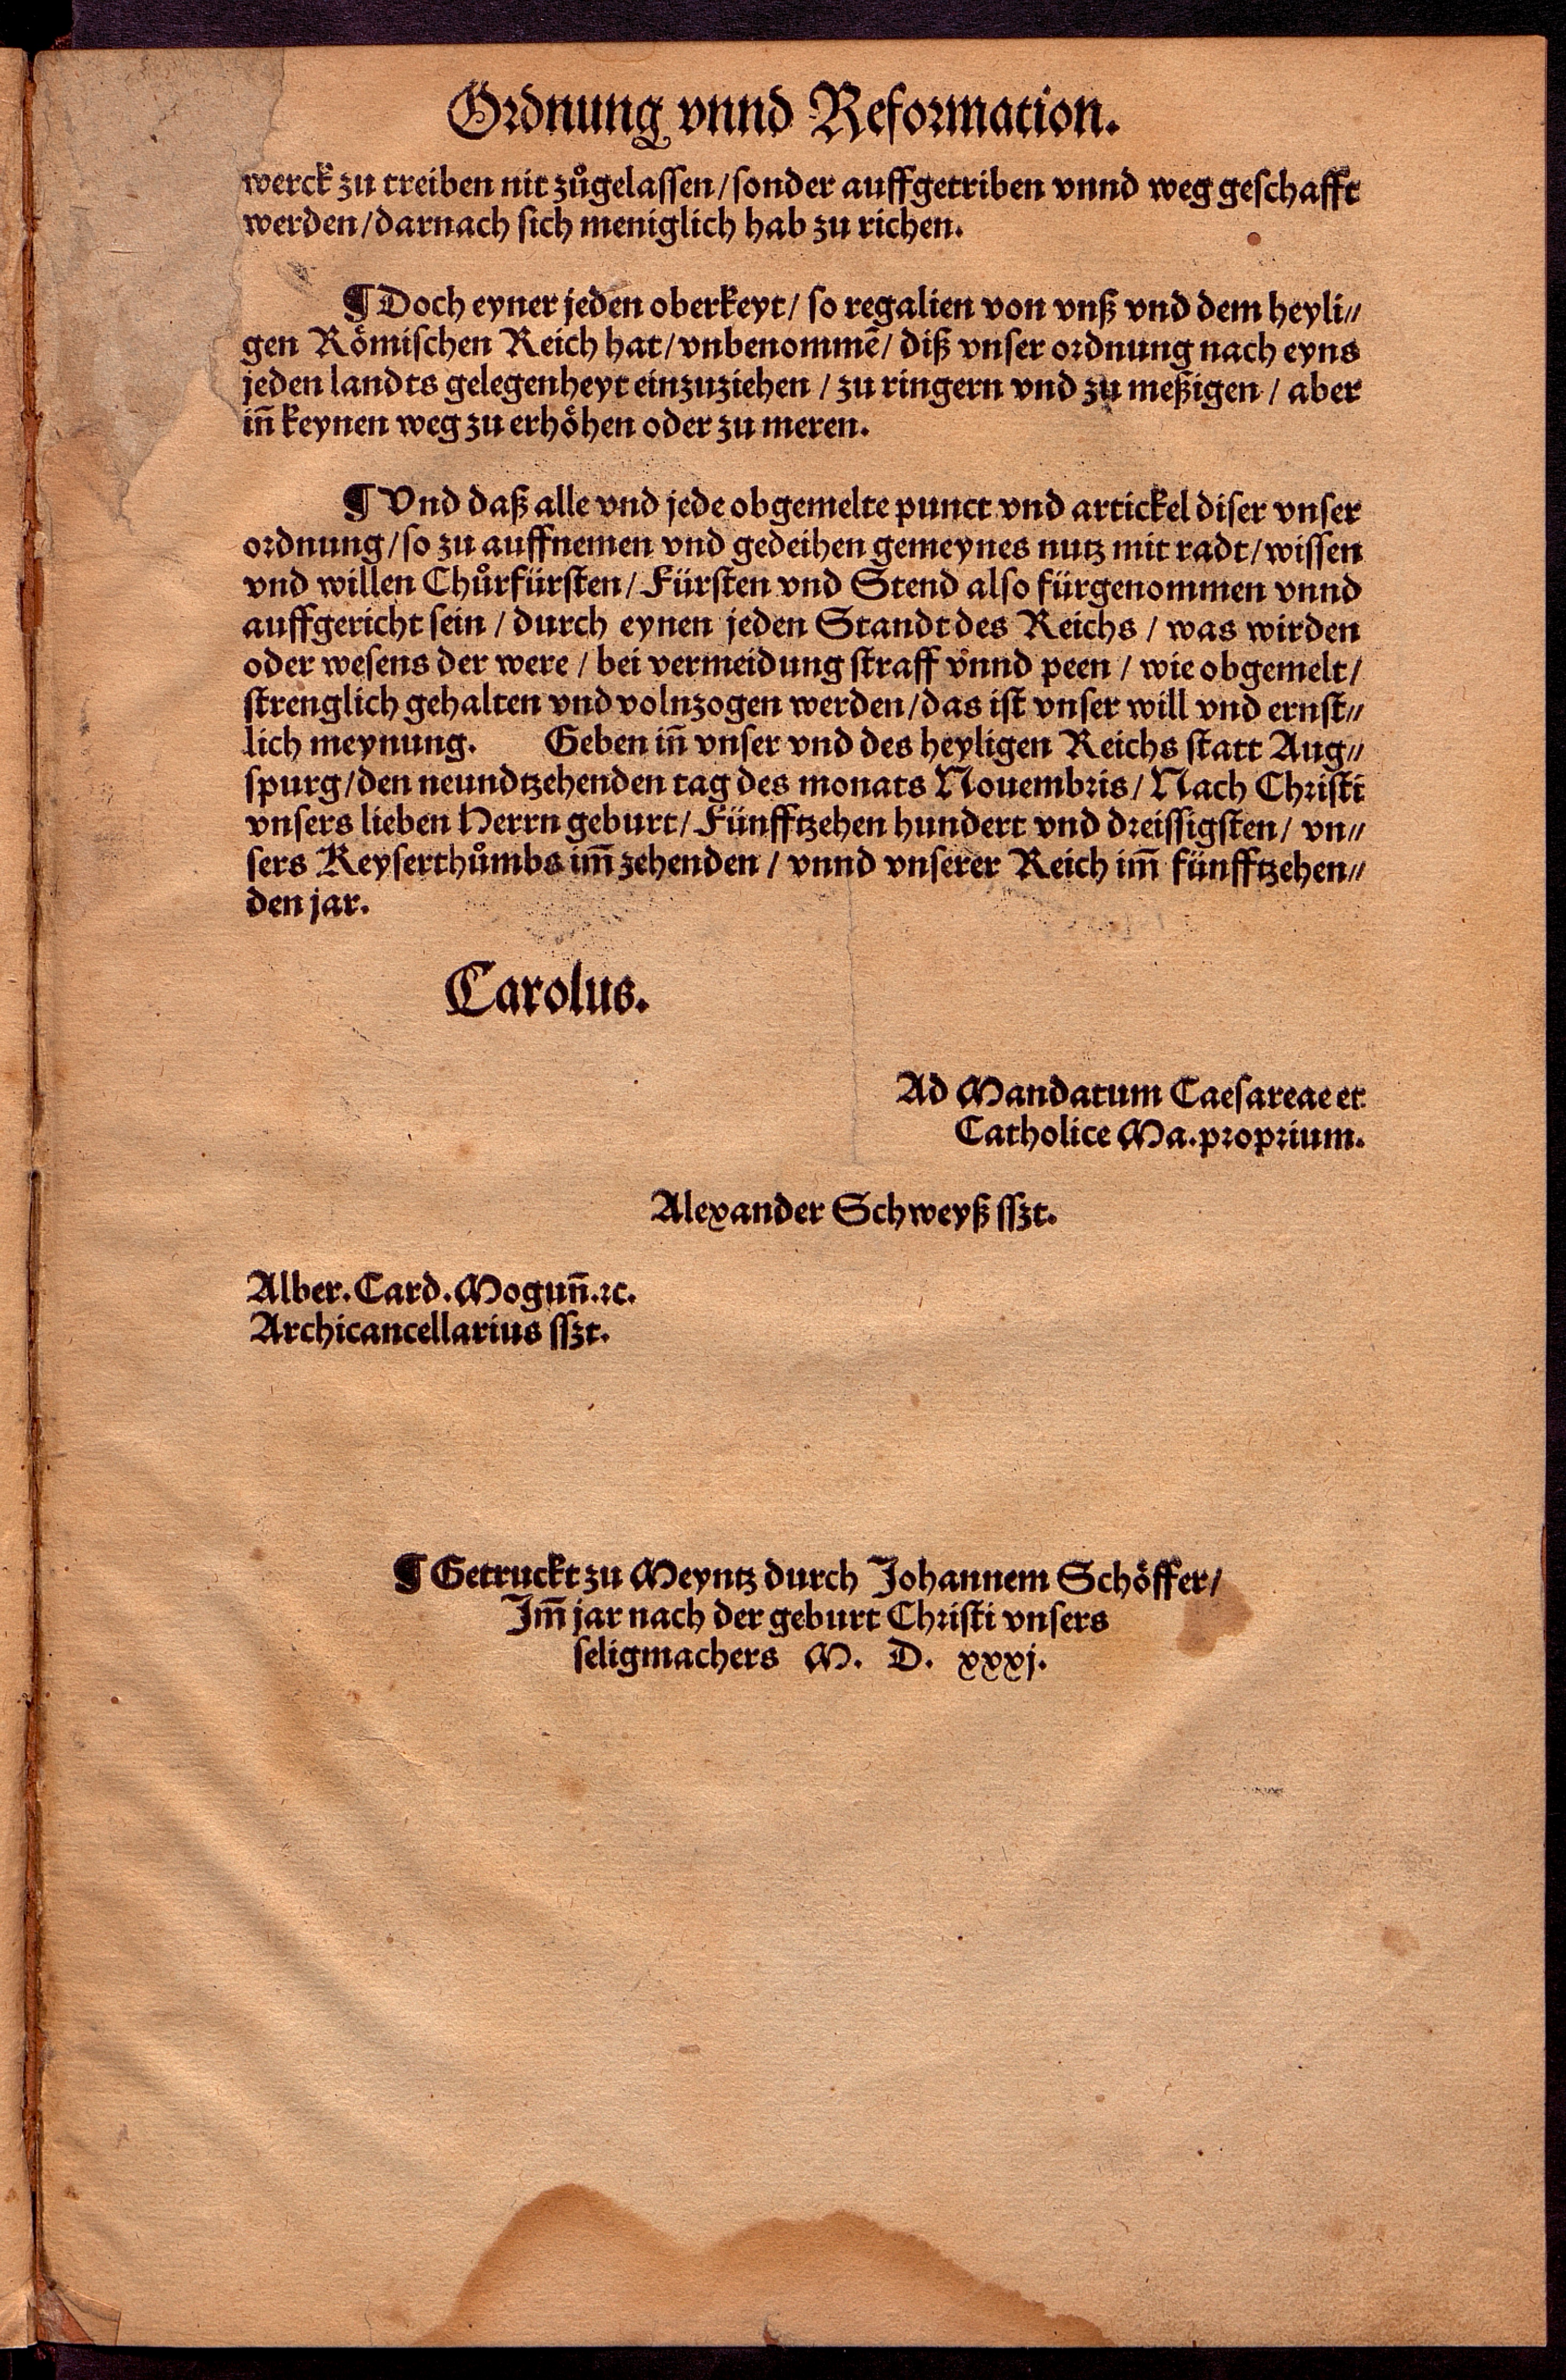 Ordnung vnnd Reformation.
werck zu treiben nit zůgelassen / sonder auffgetriben vnnd weg geschafft
werden / darnach sich meniglich hab zu richen.
¶ Doch eyner jeden oberkeyt / so regalien von vnß vnd dem heyli⸗
gen Römischen Reich hat / vnbenommē / diß vnser ordnung nach eyns
jeden landts gelegenheyt einzuziehen / zu ringern vnd zu meßigen / aber
iñ keynen weg zu erhöhen oder zu meren.
¶ Vnd daß alle vnd jede obgemelte punct vnd artickel diser vnser
ordnung / so zu auffnemen vnd gedeihen gemeynes nutz mit radt / wissen
vnd willen Chůrfürsten / Fürsten vnd Stend also fürgenommen vnnd
auffgericht sein / durch eynen jeden Standt des Reichs / was wirden
oder wesens der were / bei vermeidung straff vnnd peen / wie obgemelt /
strenglich gehalten vnd volnzogen werden / das ist vnser will vnd ernst⸗
lich meynung. Geben iñ vnser vnd des heyligen Reichs statt Aug⸗
spurg / den neundtzehenden tag des monats Nouembris / Nach Christi
vnsers lieben Herrn geburt / Fünfftzehen hundert vnd dreissigsten / vn⸗
sers Keyserthůmbs im̃ zehenden / vnnd vnserer Reich im̃ fünfftzehen⸗
den jar.
Carolus.
Ad Mandatum Caesareae et
Catholice Ma. proprium.
Alexander Schweyß sszt.
Alber. Card. Moguñ. ⁊c.
Archicancellarius sszt.
¶ Getruckt zu Meyntz durch Johannem Schöffer /
Im̃ jar nach der geburt Christi vnsers
seligmachers M. D. xxxj.